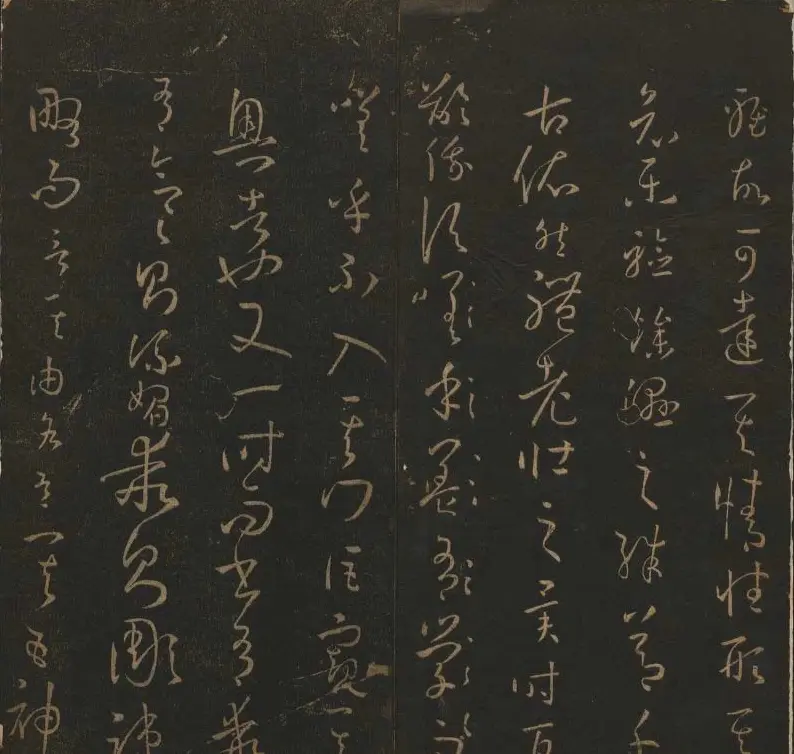 雅故可達其情性形其
哀樂驗燥濕之殊節千
古依然體老壯之異時百
齡俄頃
嗟乎不入其門詎窺其
奧者也又一時而書有乖
有合合則流媚乖則彫疎
略而言其由各有其五神